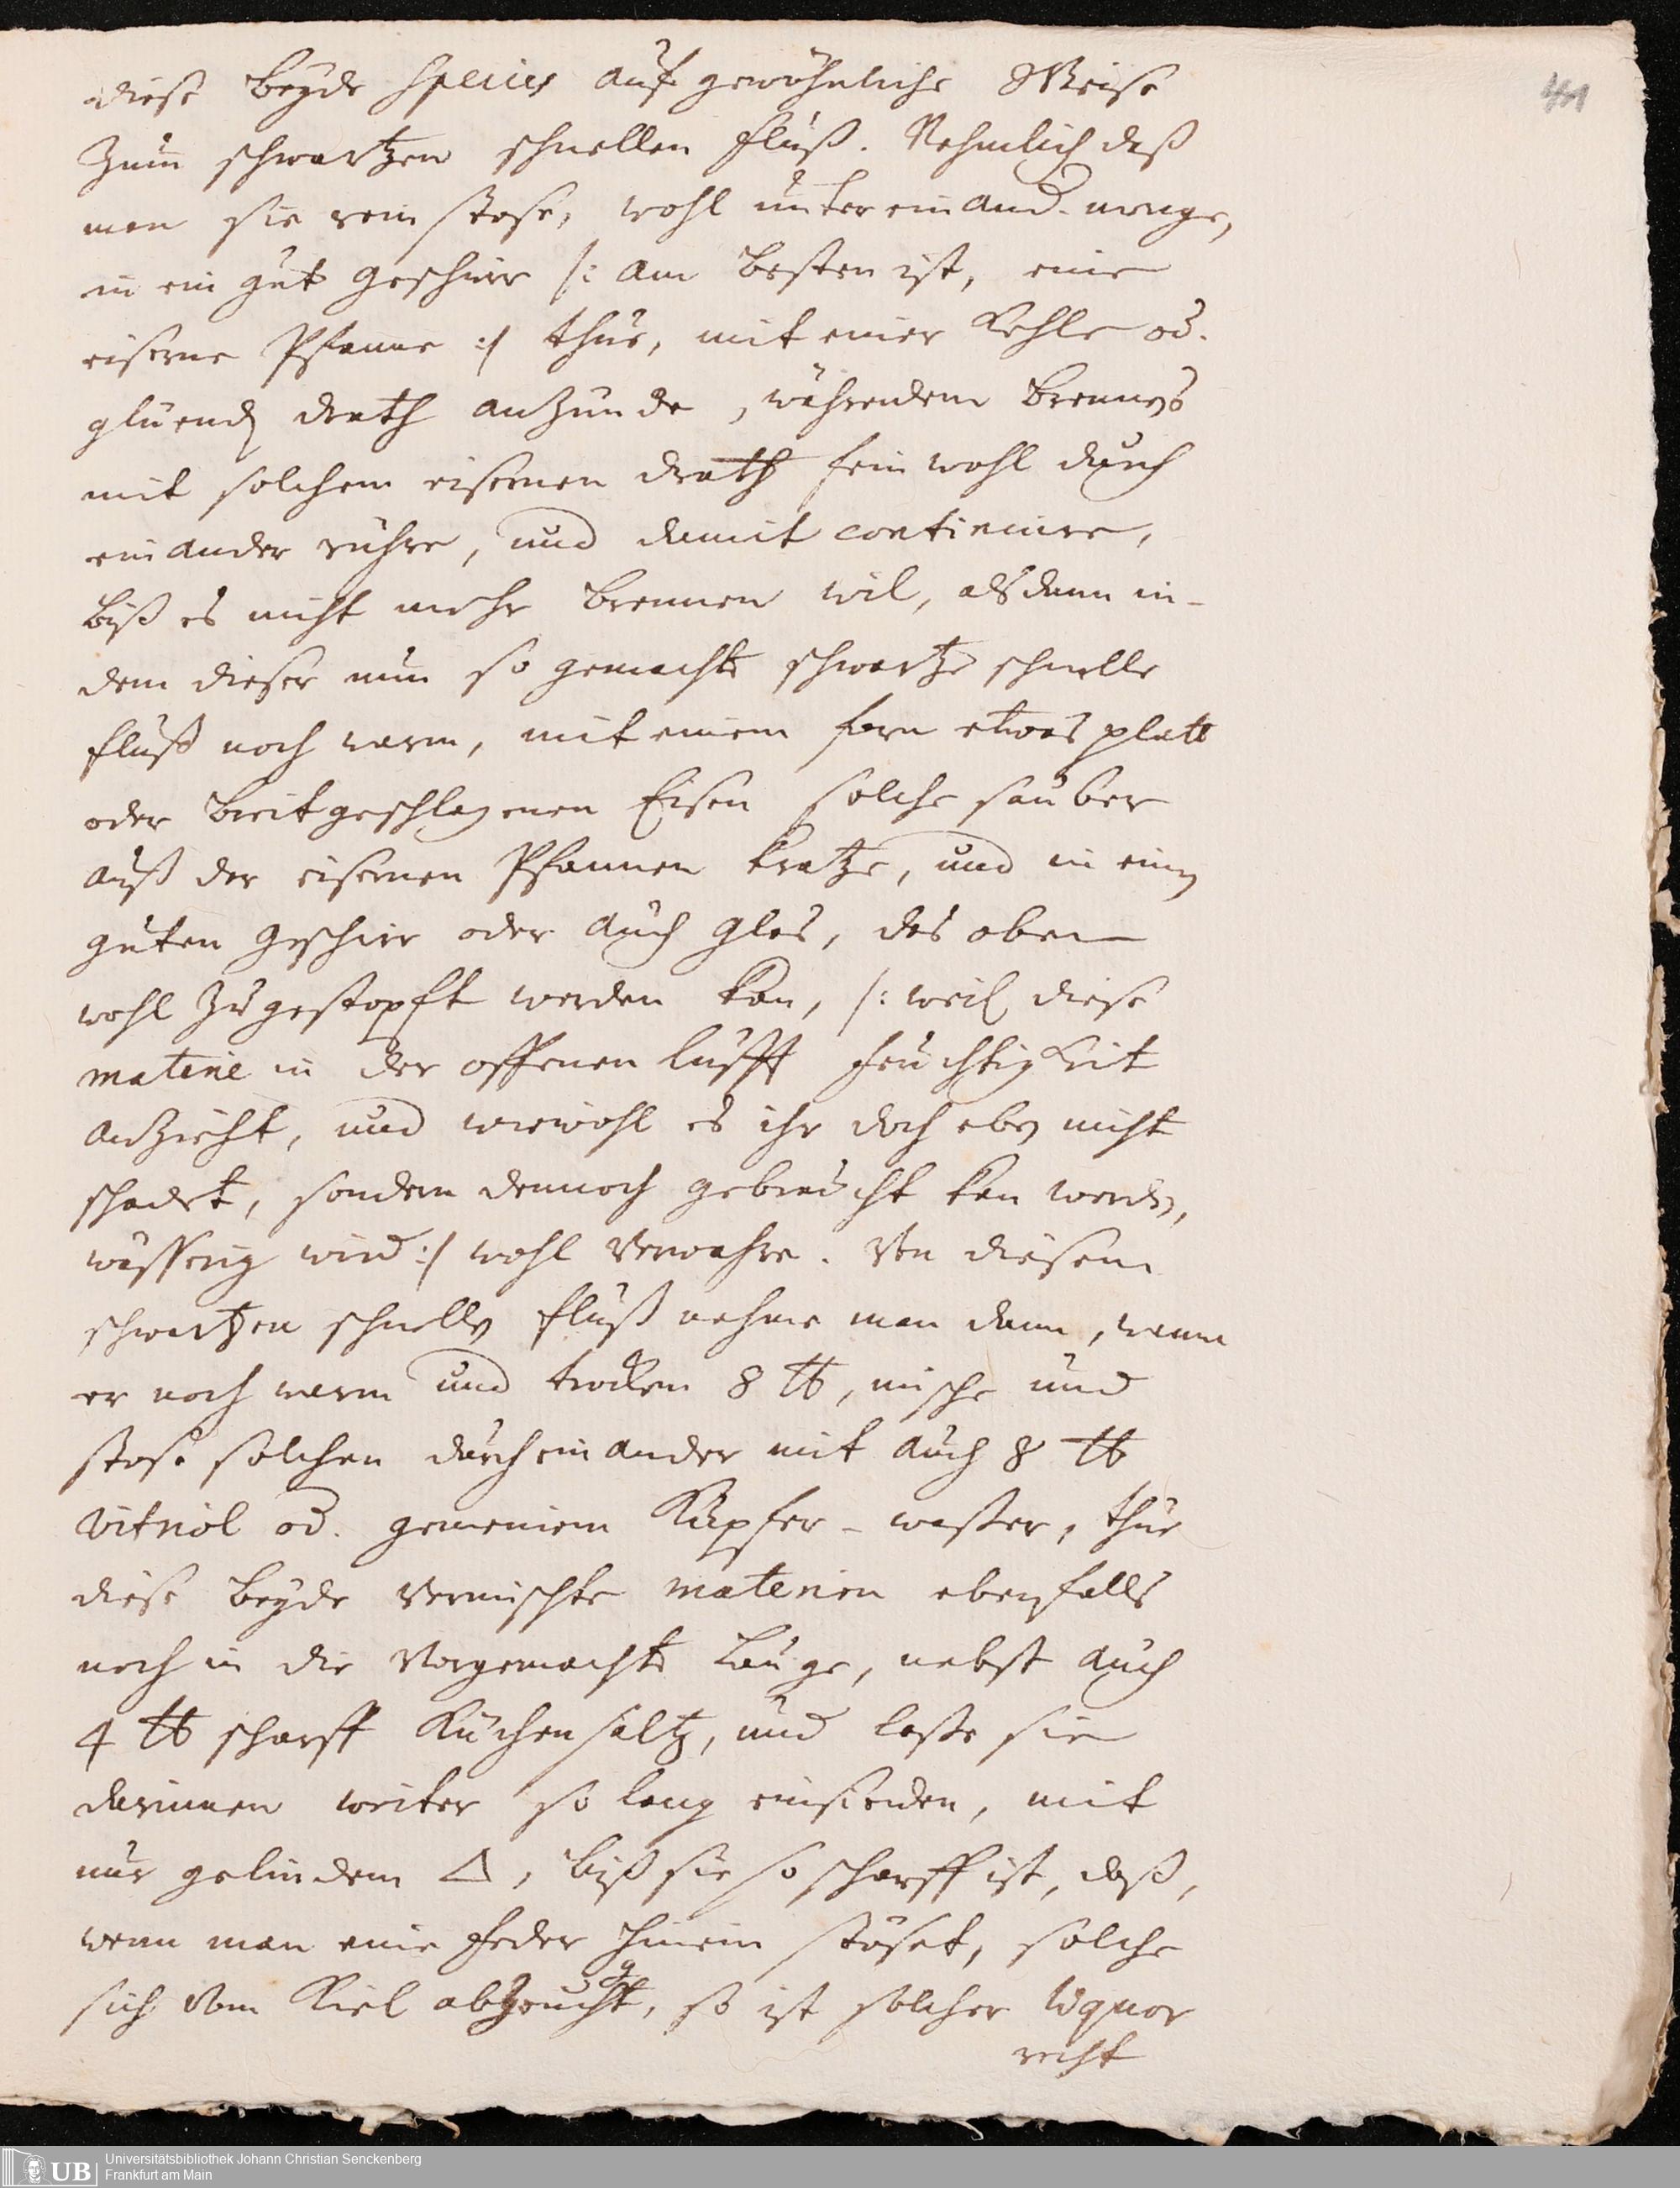 41
diese beyde Species auf gewöhnliche Weise
zum schwartzen schnellen Fluß. Nehmlich daß
man sie rein stose, wohl unter einand. menge,
in ein gut geschirr /: am besten ist, eine
eiserne Pfanne :/ thue, mit einer Kohle od.
glüend drath anzünde, währendem brennens
mit solchem eisernen drath fein wohl durch
einander rühre, und damit continuire,
biß es nicht mehr brennen wil, alsdann in-
dem dieser nun so gemachte schwartze schnelle
Fluß noch warm, mit einem forn etwas platt
oder breit geschlagenen Eisen solche sauber
auß der eisernen Pfannen kratze, und in einen
guten geschirr oder auch glas, das oben
wohl zugestopft werden kan, /: weil diese
materie in der offenen lufft feuchtigkeit
anzieht, und wiewohl es ihr doch eben nicht
schadet, sondern dennoch gebraucht kan werden,
wässerig wird :/ wohl verwahre. Von diesem
schwartzen schnellen Fluß nehme man dann, wann
er noch warm und trocken 8 ℔, mische und
stose solchen durch einander mit auch 8 ℔
Vitriol od. gemeinem Kupfer-wasser, thue
diese beyde vermischte materien ebenfalls
noch in die vorgemachte Lauge, nebst auch
4 ℔ scharff Küchen saltz, und lasse sie
darinnen weiter so lang einsieden, mit
nur gelindem 🜂, biß sie so scharff ist, daß,
wenn man eine feder hinein stöset, solche
sich vom Kiel abzeucht, so ist solcher liquor
recht
Universitätsbibliothek Johann Christian Senckenberg
UB
Frankfurt am Main